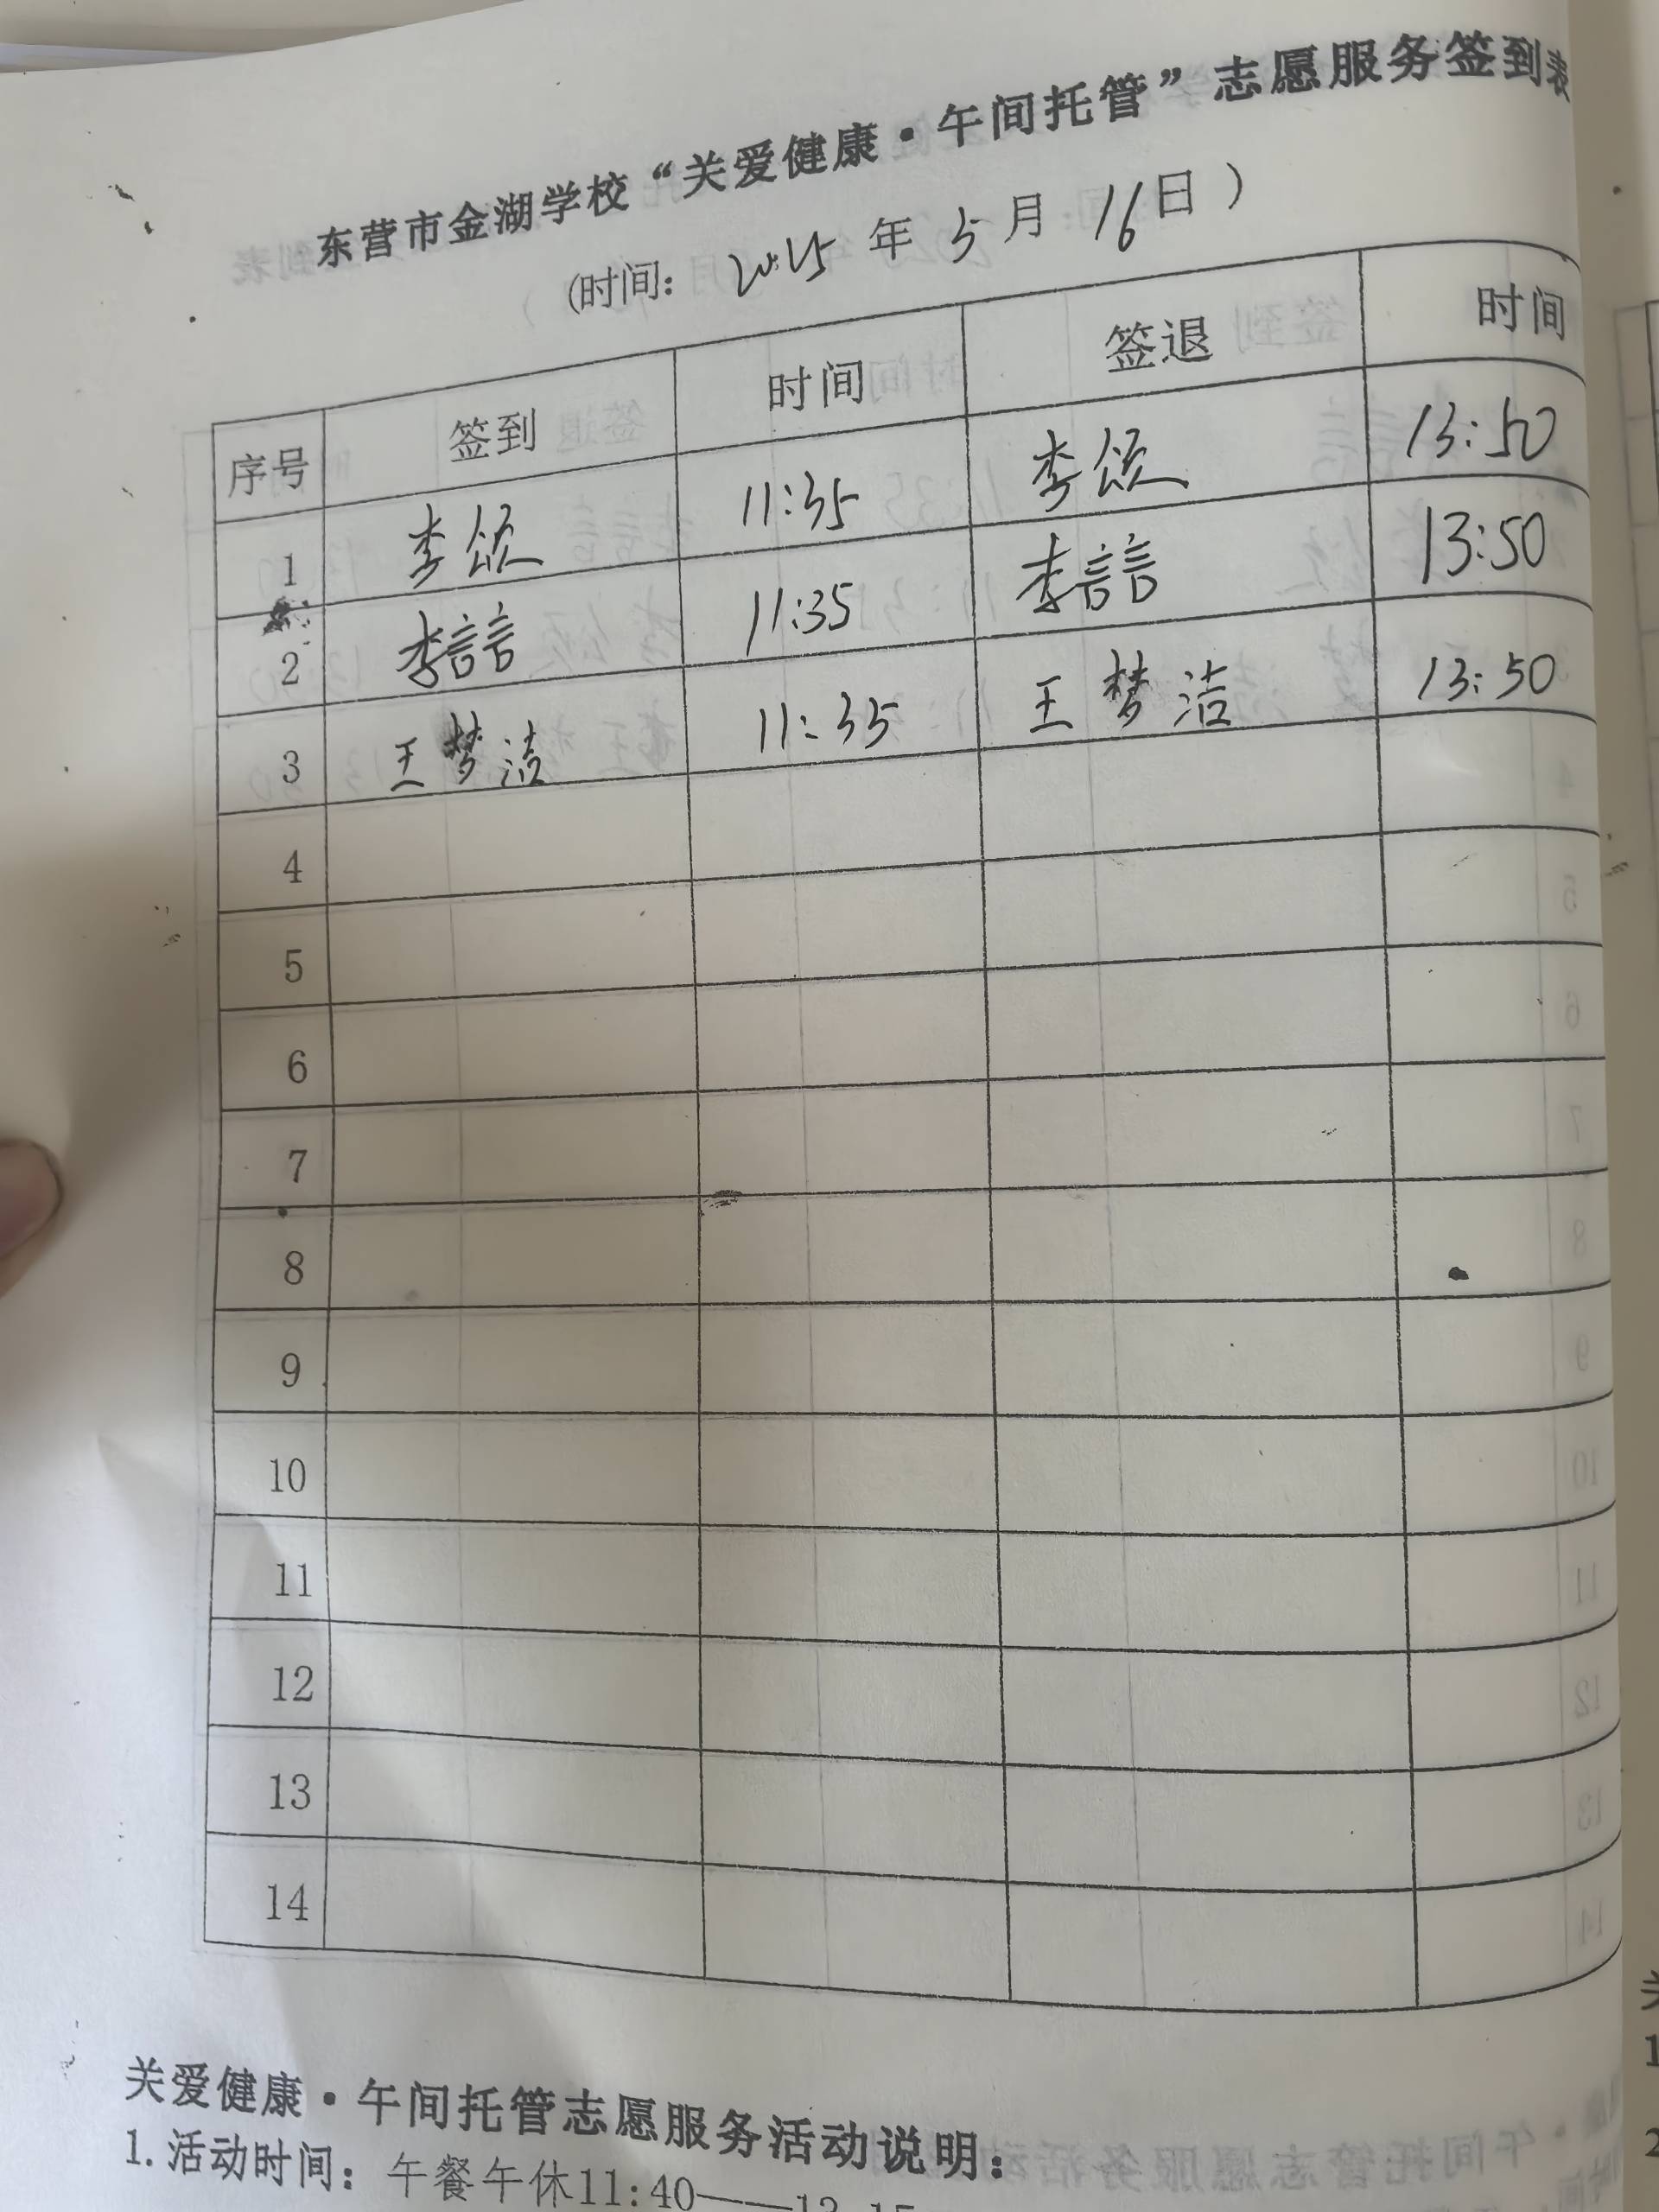 东营市金湖学校“关爱健康·午间托管”志愿服务签到表
(时间: 2025 年 5 月 16 日)
序号 签到 时间 签退 时间
1 李颂 11:35 李颂 13:50
2 李言言 11:35 李言言 13:50
3 王梦洁 11:35 王梦洁 13:50
4
5
6
7
8
9
10
11
12
13
14
关爱健康·午间托管志愿服务活动说明:
1.活动时间: 午餐午休11:40——